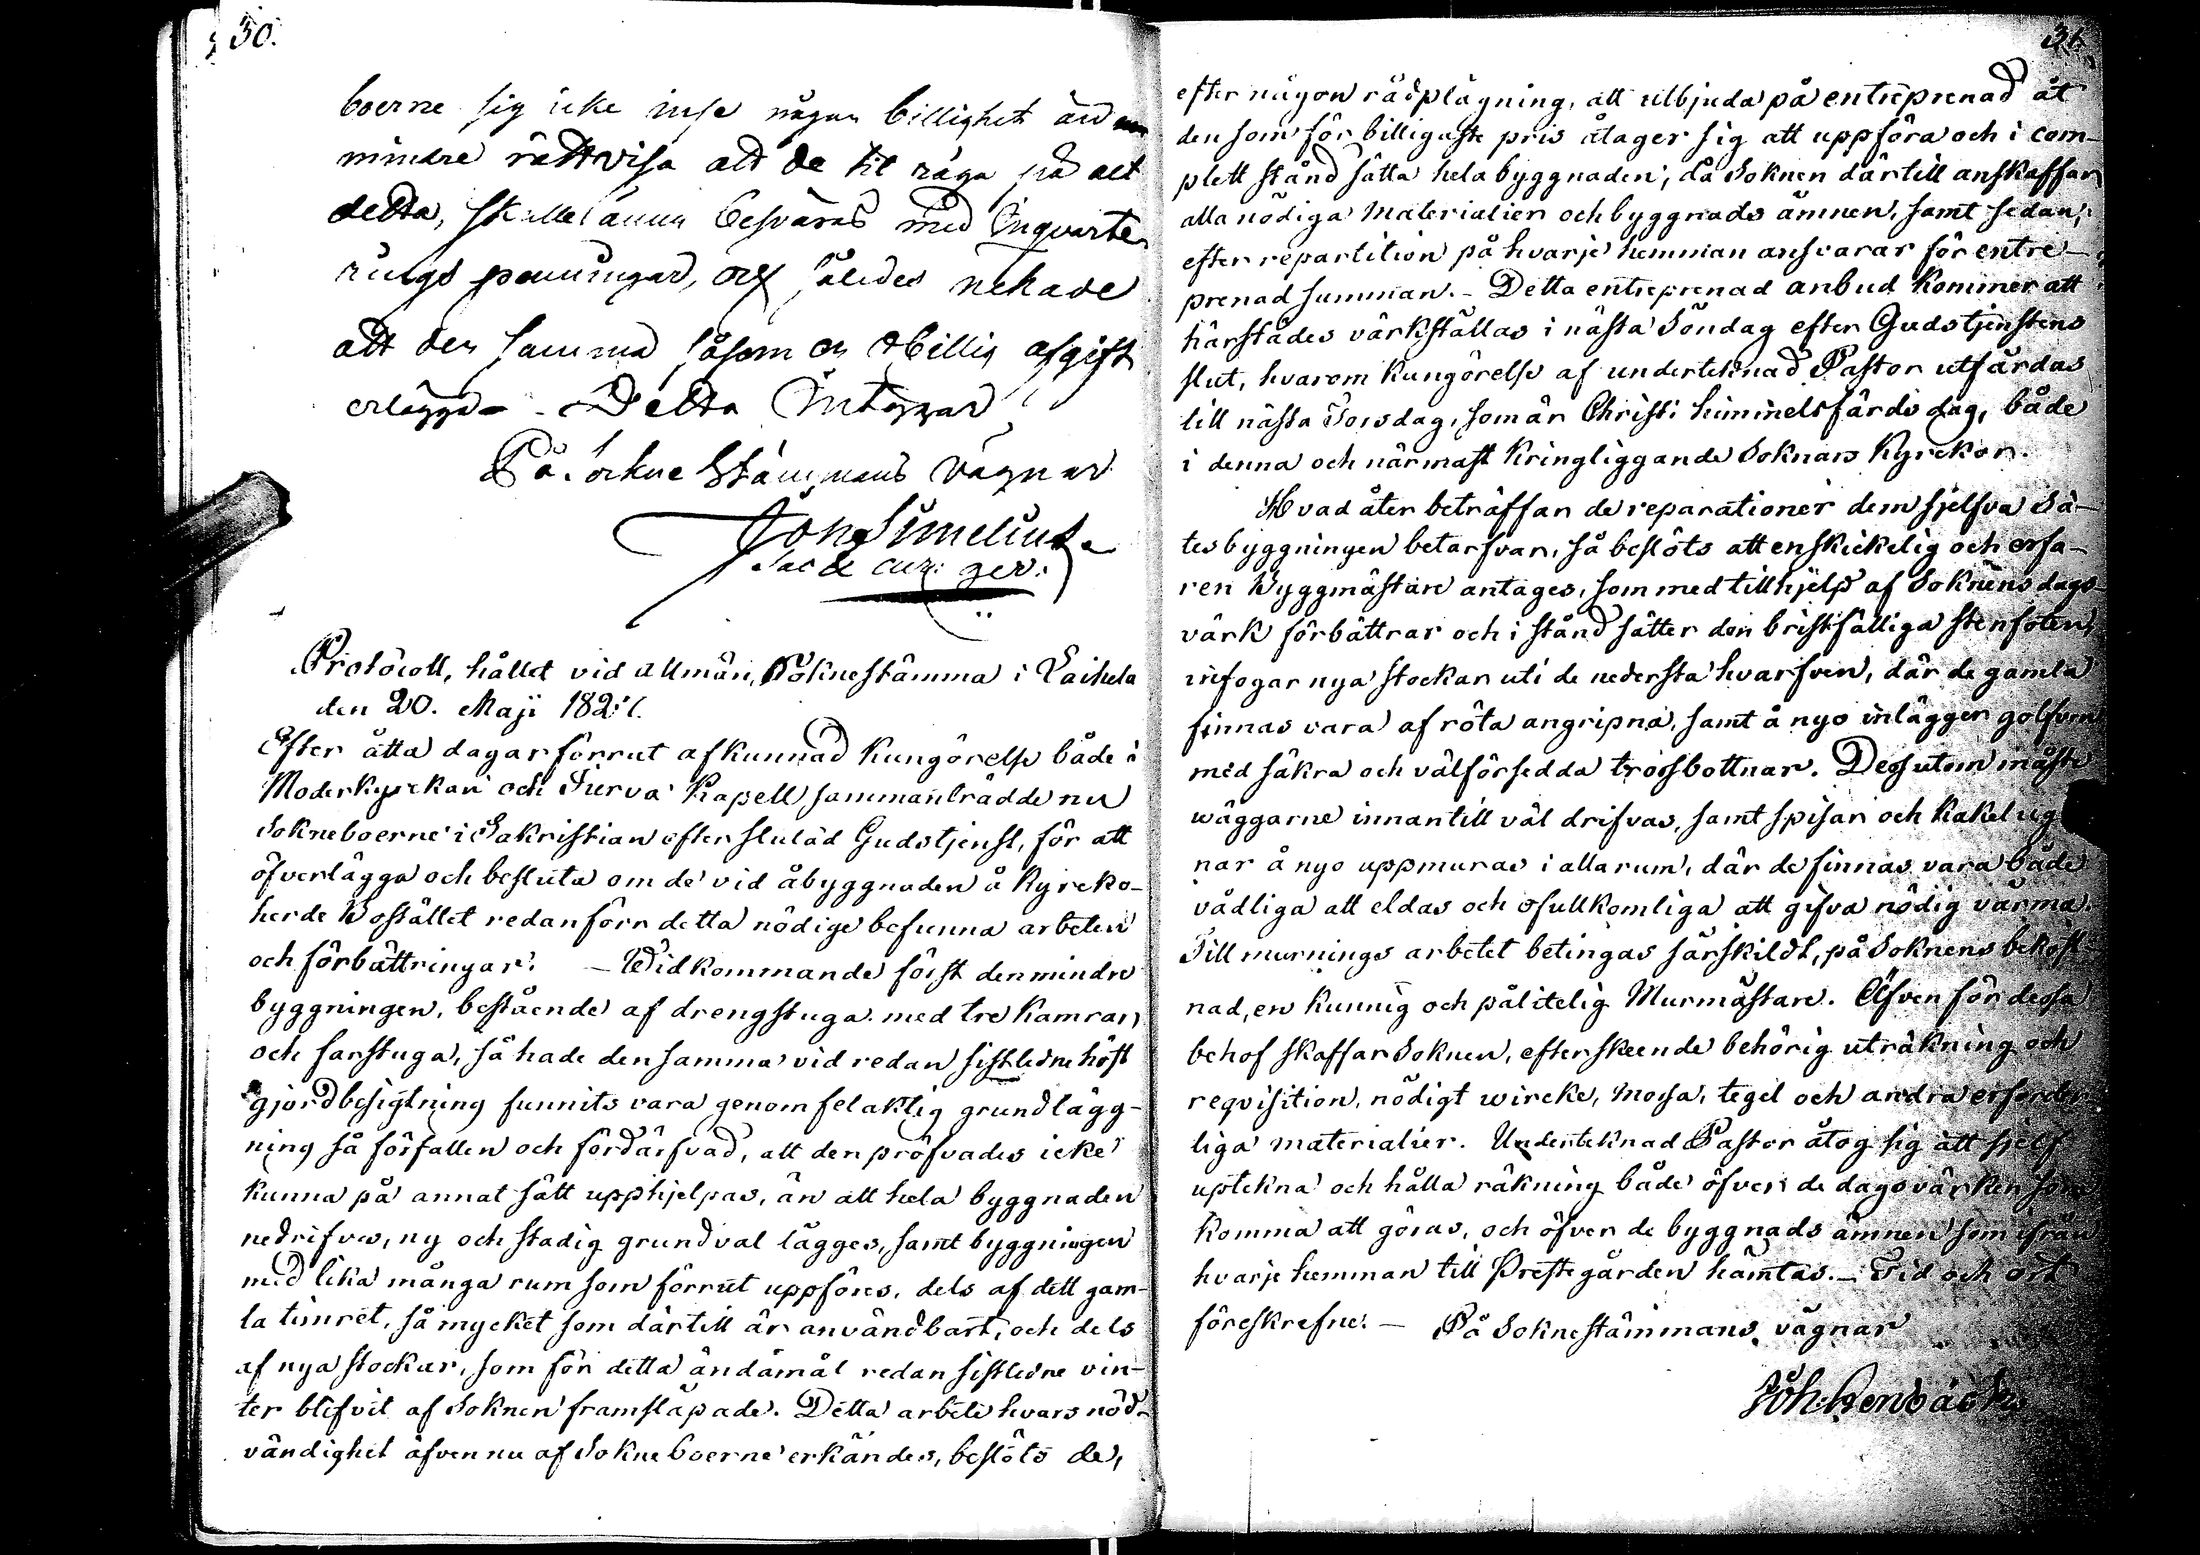 30.
boerne sig icke inse någon billighet än
mindre rättvisa att de til råga på alt
detta, skulle ännu besväras med Inqvarte
rings penningar, och således nekade
att den samma såsom en obillig afgift
erlägga. - Detta Intygar
På Sockne Stämmans vägnar
Joh Simelius
Sac & cur: ger:
Protocoll, hållet vid allmän Soknestämma i Laihela
den 20. Maji 1821.
Efter åtta dagar förrut afkunnad kungörelse både i
Moderkyrckan och Jurva Kapell sammanträdde nu
Sokneboerne i Sakristian efter slutad Gudstjenst, för att
öfverlägga och besluta om de vid åbyggnaden å Kyrcko-
herde Bostället redan förr detta nödige befunna arbeten
och förbättringar. - Widkommande först den mindre
byggningen, bestående af drengstuga med tre kamrar,
och farstuga, så hade den samma vid redan sistledne höst
gjord besigtning funnits vara genom felaktig grundlägg-
ning så förfallen och fördärfvad, att den pröfvades icke
kunna på annat sätt upphjelpas, än att hela byggnaden
nedrifves, ny och stadig grundval lägges, samt byggningen
med lika många rum som förrut uppföres, dels af dett gam-
la timret, så mycket som därtill är användbart, och dels
af nya stockar, som för detta ändamål redan sistledne vin-
ter blifvit af Soknen framsläpade. Detta arbete hvars nöd-
vändighet äfven nu af Sokneboerne erkändes, beslöts de,
31.
efter någon rådplägning, att utbjuda på entreprenad åt
den som för billigaste pris åtager sig att uppföra och i com-
plett stånd sätta hela byggnaden, då Soknen därtill anskaffar
alla nödiga materialier och byggnads ämnen, samt sedan,
efter repartition på hvarje hemman ansvarar för entre-
prenad summan. - Detta entreprenad anbud kommer att
härstädes värkställas i nästa Söndag efter Gudstjenstens
slut, hvarom kungörelse af underteknad Pastor utfärdas
till nästa Torsdag, som är Christi himmelsfärds dag, både
i denna och närmast kringliggande Soknars Kyrckor.
Hvad åter beträffar de reparationer dem sjelfva Sä-
tesbyggningen betarfvar, så beslöts att en skickelig och erfa-
ren Byggmästare antages, som med tillhjelp af Soknens dags-
värk förbättrar och i stånd sätter den bristfälliga stenfoten,
infogar nya stockar uti de nedersta hvarfven, där de gamla
finnas vara af röta angripna, samt å nyo inlägger golfven
med säkra och välförsedda trossbottnar. Dessutom måste
wäggarne innantill väl drifvas, samt spisar och kakelug
nar å nyo uppmuras i alla rum, där de finnas vara både
vådliga att eldas och ofullkomliga att gifva nödig värma.
Till murnings arbetet betingas särskildt, på Soknens bekost-
nad, en kunnig och pålitelig Murmästare. Äfven för dessa
behof skaffar Soknen, efter skeende behörig uträkning och
reqvisition, nödigt wircke, mossa, tegel och andra erforder-
liga materialier. Underteknad Pastor åtog sig att sjelf
uptekna och hålla räkning både öfver de dagsvärken som
komma att göras, och öfver de byggnads ämnen som ifrån
hvarje hemman till Prestegården hämtas. - Tid och ort
föreskrefne. - På Soknestämmans vägnar